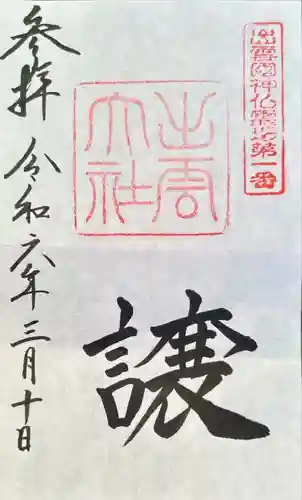 出雲國神仏霊場第一番
出雲
大社
譲
参拝 令和六年三月十日